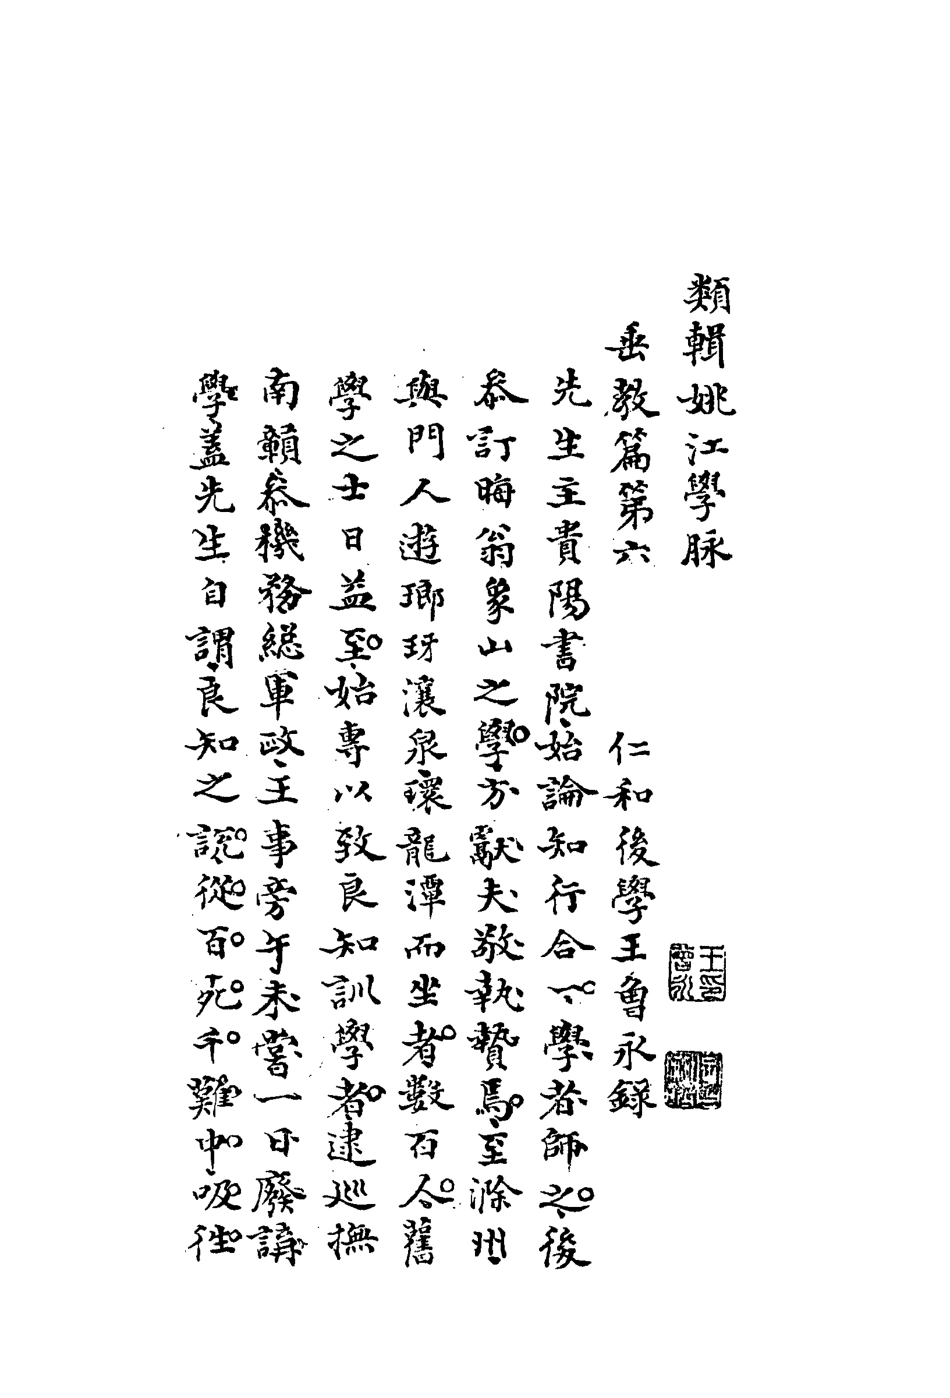 類輯姚江學脉
垂教篇第六 仁和後學王曾永錄
先生主貴陽書院始論知行合一學者師之後
叅訂晦翁象山之學方獻夫敬執贄焉至滁州
與門人遊瑯玡瀼泉環龍潭而坐者數百人舊
學之士日益至始專以致良知訓學者逮巡撫
南贛叅機務總軍政王事旁午未嘗一日廢講
學蓋先生自謂良知之說從百死千難中吸徃